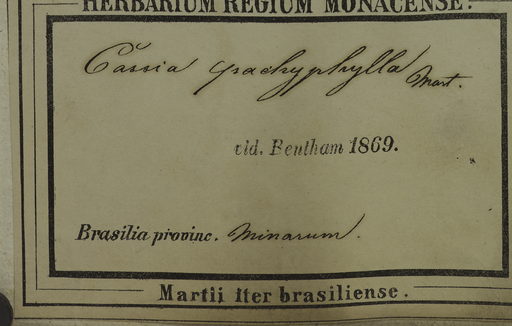 HERBARIUM REGIUM MONACENSE.
Cassia pachyphylla Mart.
vid. Bentham 1869.
Brasilia provinc. Minarum.
Martii Iter brasiliense.